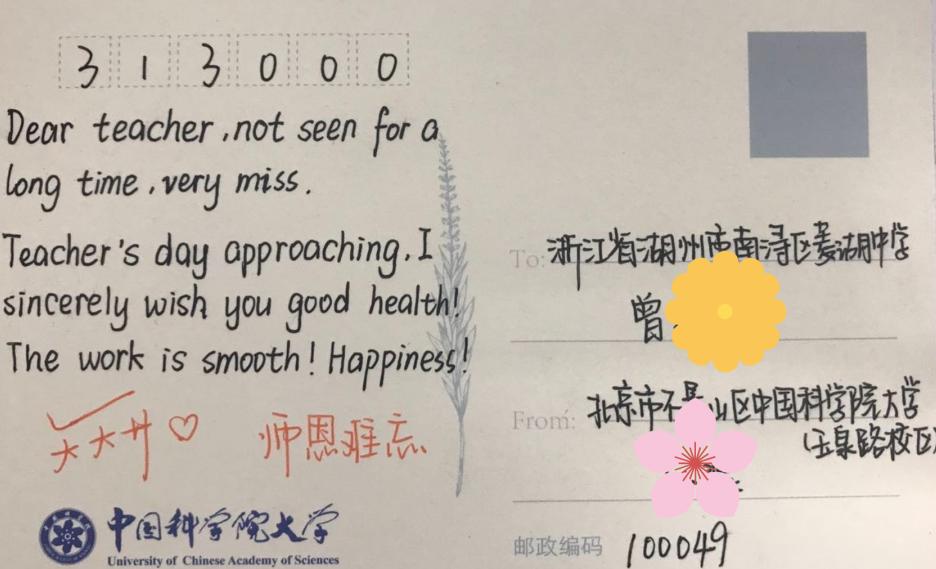 313000
Dear teacher, not seen for a
long time, very miss.
Teacher's day approaching, I
sincerely wish you good health!
The work is smooth! Happiness!
天天升♡ 师恩难忘
中国科学院大学
University of Chinese Academy of Sciences
To: 浙江省湖州市南浔区菱湖中学
曾
From: 北京市石景山区中国科学院大学
(玉泉路校区)
邮政编码 100049